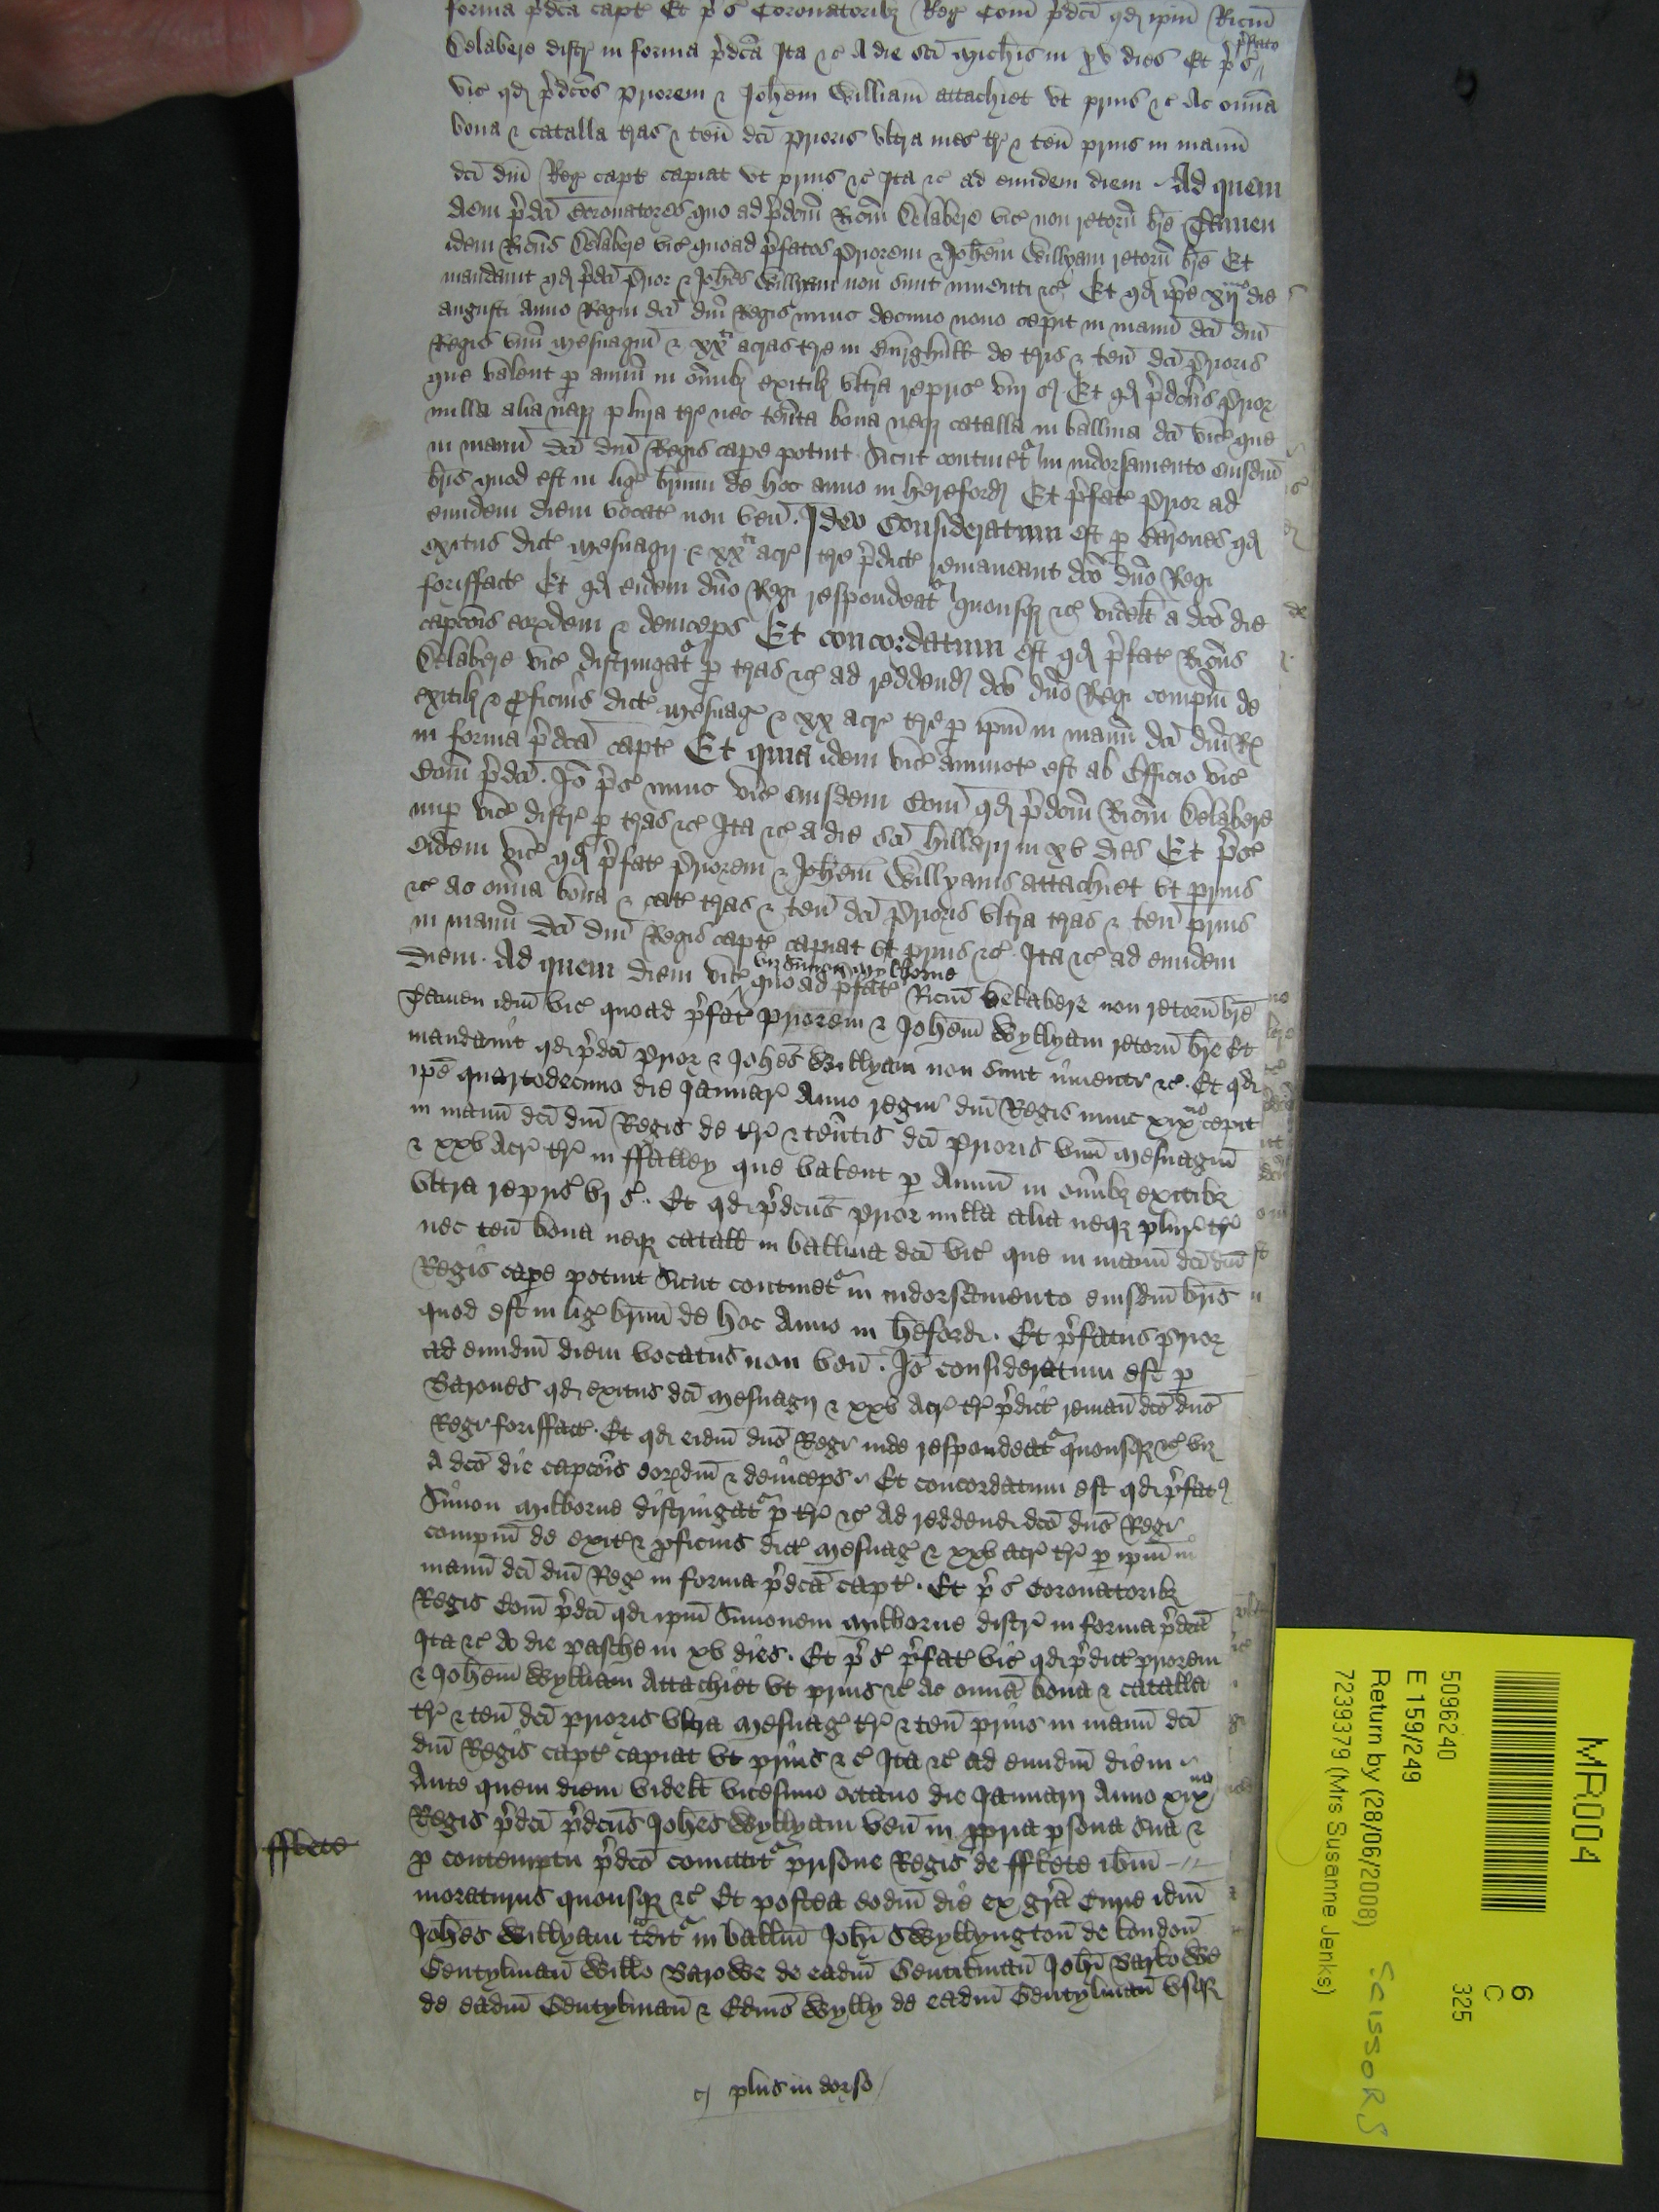 forma p̄dca capt Et p̄ s Coronatorib3 Reg Com̄ p̄dci qđ ip̄m Ricm̄
Delabere distr in forma p̄dca Ita &c A die sci Michis in xv dies Et p̄ s p̄fato
vic qđ p̄dcos Priorem & Johem William attachiet vt prius &c Ac omia
bona & catalla tras & ten̄ dci Prioris vltra mes tr & ten̄ prius in manu
dci dn̄i Reg capt capiat vt prius &c Ita &c ad eundem diem Ad quem
diem p̄dci Coronatores quo ad p̄dcm̄ Ricm̄ Delabere vic non retorn̄ bre Tamen
idem Ricus Delabere vic quoad p̄fatos Priorem & Johem Willyam retorn̄ bre Et
mandauit qđ p̄dci Prior & Johes Willyam non sunt inuenti &c Et qđ ip̄e xij die
augusti Anno Regni dci dn̄i Regis nunc decimo nono cepit in manu dci dn̄i
Regis vnu mesuagiu & xx acras tre in Burghull de tris & ten̄ dci Prioris
que valent p annu in omib3 exitib3 vltra repris viij s Et qđ p̄dcus Prior
nulla alia neq3 plura tr nec tenta bona neq3 catalla in balliua dci vic que
in manu dci dn̄i Regis cape potuit Sicut continet in indorsamento eiusdm̄
bris quod est in lig briuu de hoc anno in Hereford Et p̄fat Prior ad
eundem diem vocat non ven̄ Ideo Consideratum est p Barones qđ
exitus dict mesuagij & xx acr tre p̄dict remaneant dco dn̄o Regi
forisfact Et qđ eidem dn̄o Regi respondeat quousq3 &c videlt a dco die
capcois eordem & deinceps Et concordatum est qđ p̄fat Ricus
Delabere vic distringat p tras &c ad reddend dco dn̄o Regi compm̄ de
exitib3 & proficuis dict mesuag & xx acr tre p ip̄m in manu dci dn̄i R
in forma p̄dca capt Et quia idem vic ammot est ab Officio vic
Com̄ p̄dci Io p̄ s nunc vic eiusdem Com̄ qđ p̄dcm̄ Ricm̄ Delabere
nup vic distr p tras &c Ita &c a die sci Hillarij in xv dies Et p̄ s
eidem vic qđ p̄fat Priorem & Johem Willyams attachiet vt prius
&c Ac omia bona & cat tras & ten̄ dci Prioris vltra tras & ten̄ prius
in manu dci dn̄i Regis capt capiat vt prius &c Ita &c ad eundem
diem Ad quem diem vic viz Simon Mylborne quo ad p̄fat Ricm̄ Delabere non retorn̄ bre
Tamen idm̄ vic quoad p̄fat Priorem & Johem Wyllyam retorn̄ bre Et
mandauit qđ p̄dci Prior & Johes Willyam non sunt inuenti &c Et qđ
ip̄e quartodecimo die Januar Anno regni dn̄i Regis nunc xix cepit
in manu dci dn̄i Regis de tr & tentis dci Prioris vnu mesuagiu
& xxv Acr tr in ffalley que valent p Annu in omib3 exitib3
vltra repris vj s Et qđ p̄dcus Prior nulla alia neq3 plur tr
nec ten̄ bona neq3 catall in balliua dci vic que in manu dci dn̄i
Regis cape potuit Sicut continet in indorsamento eiusdm̄ bris
quod est in lig briuu de hoc Anno in Heford Et p̄fatus Prior
ad eundm̄ diem vocatus non ven̄ Io consideratum est p
Barones qđ exitus dci mesuagij & xxv Acr tr p̄dict reman̄ dco dn̄o
Regi forisfact Et qđ eidm̄ dn̄o Regi inde respondeat quousq3 &c viz
A dco die capcois eordm̄ & deinceps Et concordatum est qđ p̄fat
Simon Mylborne distringat p tr &c Ad reddend dco dn̄o Regi
compm̄ de exit & proficuis dict mesuag & xxv acr tr p ip̄m in
manu dci dn̄i Reg in forma p̄dca capt Et p̄ s Coronatorib3
Regis Com̄ p̄dci qđ ip̄m Simonem Mylborne distr in forma p̄dca
Ita &c A die Pasche in xv dies Et p̄ s p̄fat vic qđ p̄dict Priorem
& Johem Wylliam Attachiet vt prius &c Ac omia bona & catalla
tr & ten̄ dci Prioris vltra mesuag tr & ten̄ prius in manu dci
dn̄i Regis capt capiat vt prius &c Ita &c ad eundm̄ diem
Ante quem diem videlt vicesimo octauo die Januarij Anno xix no
Regis p̄dci p̄dcus Johes Wyllyam ven̄ in ppria psona sua &
fflete
p contemptu p̄dco comittit prisone Regis de fflete ibm̄
moraturus quousq3 &c Et postea eodm̄ die ex gra Curie idm̄
Johes Willyam tdit in balliu Johi Swyllyngton de london
Gentylman Willo Barowe de eadm̄ Gentilman Johi Barlowe
de eadm̄ Gentylman & Edmo Wylly de eadm̄ Gentylman vsq3
plus in dorso
MR004
6
C
325
5096240
E 159/249
Return by (28/06/2008)
7239379 (Mrs Susanne Jenks)
SCISSORS